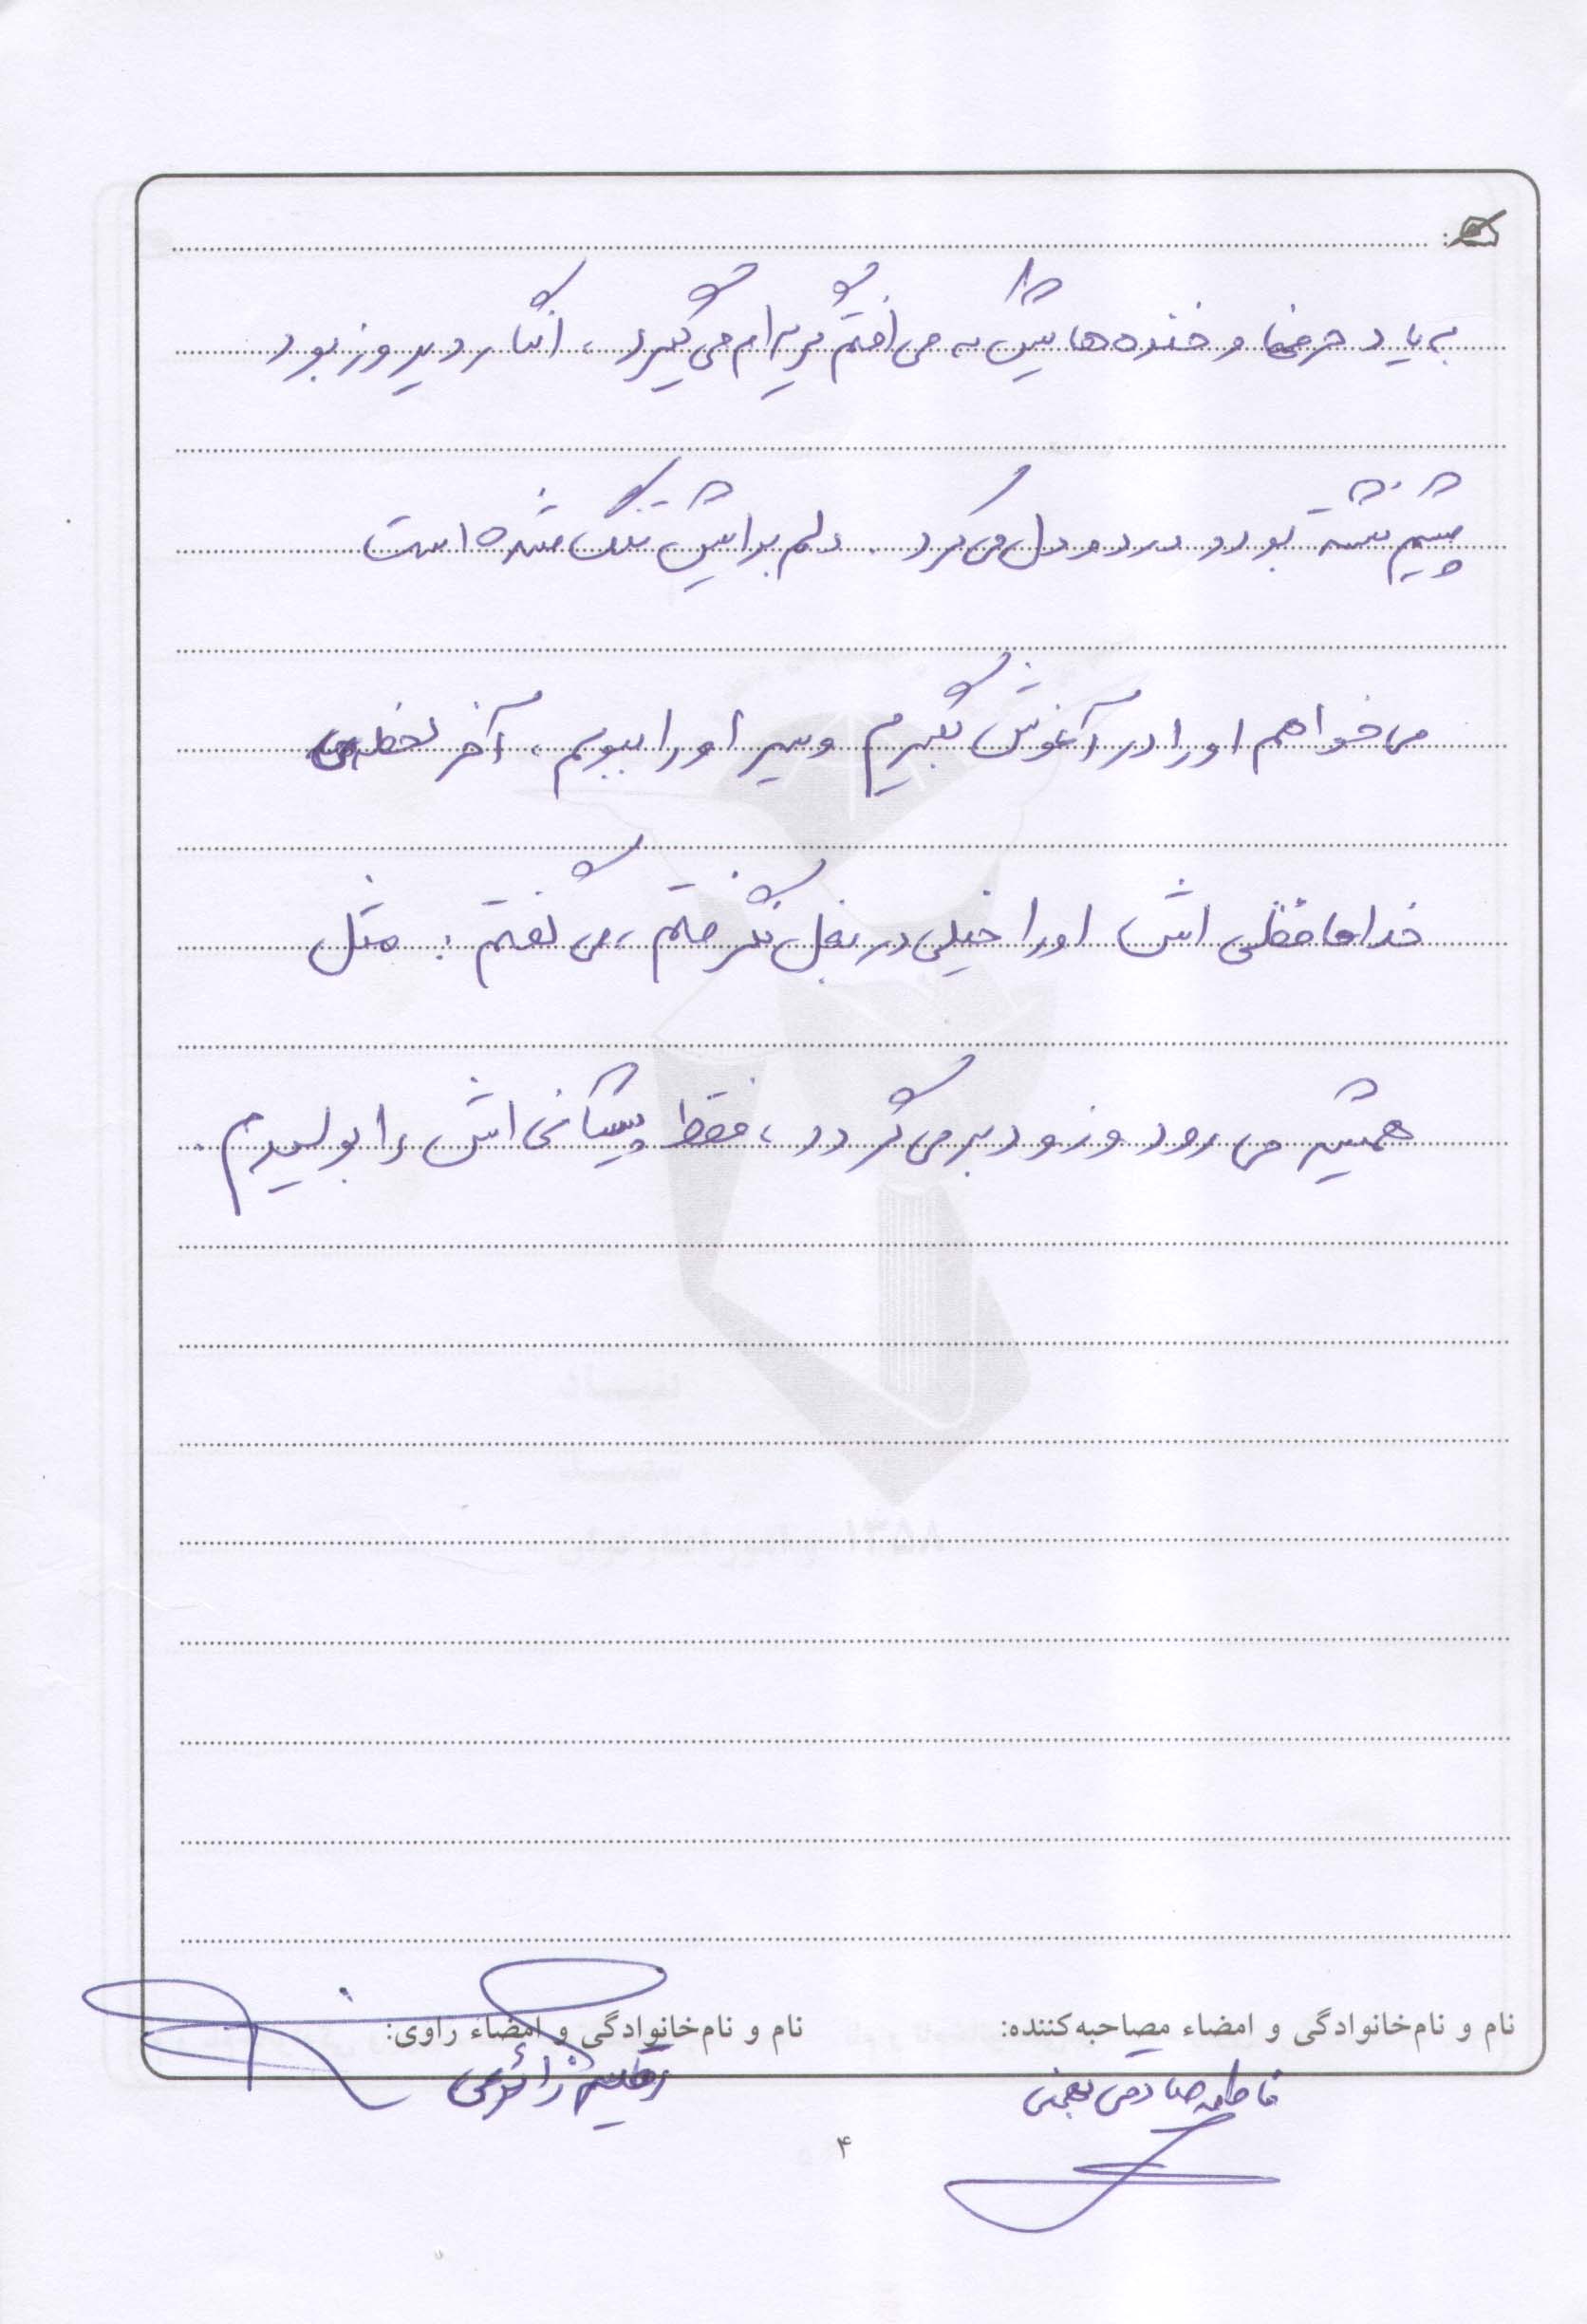 به یاد حرفها و خنده هایش که می افتم گریه ام می گیرد، انگار دیروز بود
پیشم نشسته بود و درد و دل می کرد. دلم برایش تنگ شده است
می خواهم او را در آغوش بگیرم و سیر او را ببویم، آخر لحظه‌ی
خداحافظی اش او را خیلی در بغل نگرفتم، می گفتم: مثل
همیشه می رود و زود بر می گردد، فقط پیشانی اش را بوسیدم.
نام و نام‌خانوادگی و امضاء مصاحبه‌کننده:
نام و نام‌خانوادگی و امضاء راوی:
فاطمه صادقی
۴